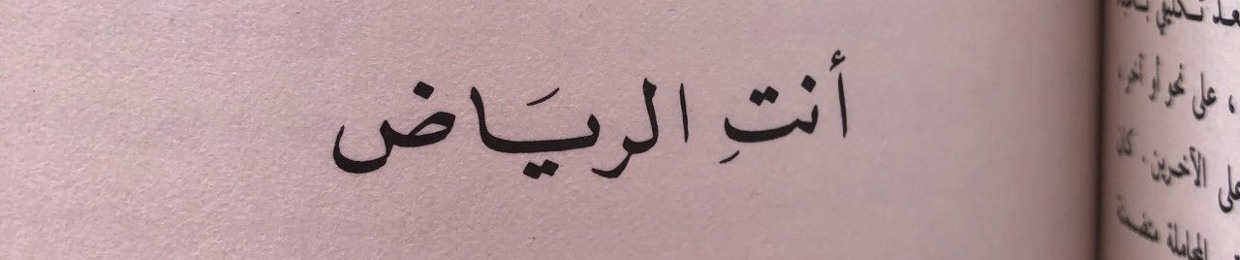 أنتِ الريَاض
، على نحو أو آخر،
على الآخرين. كان
المجاملة متضمنة